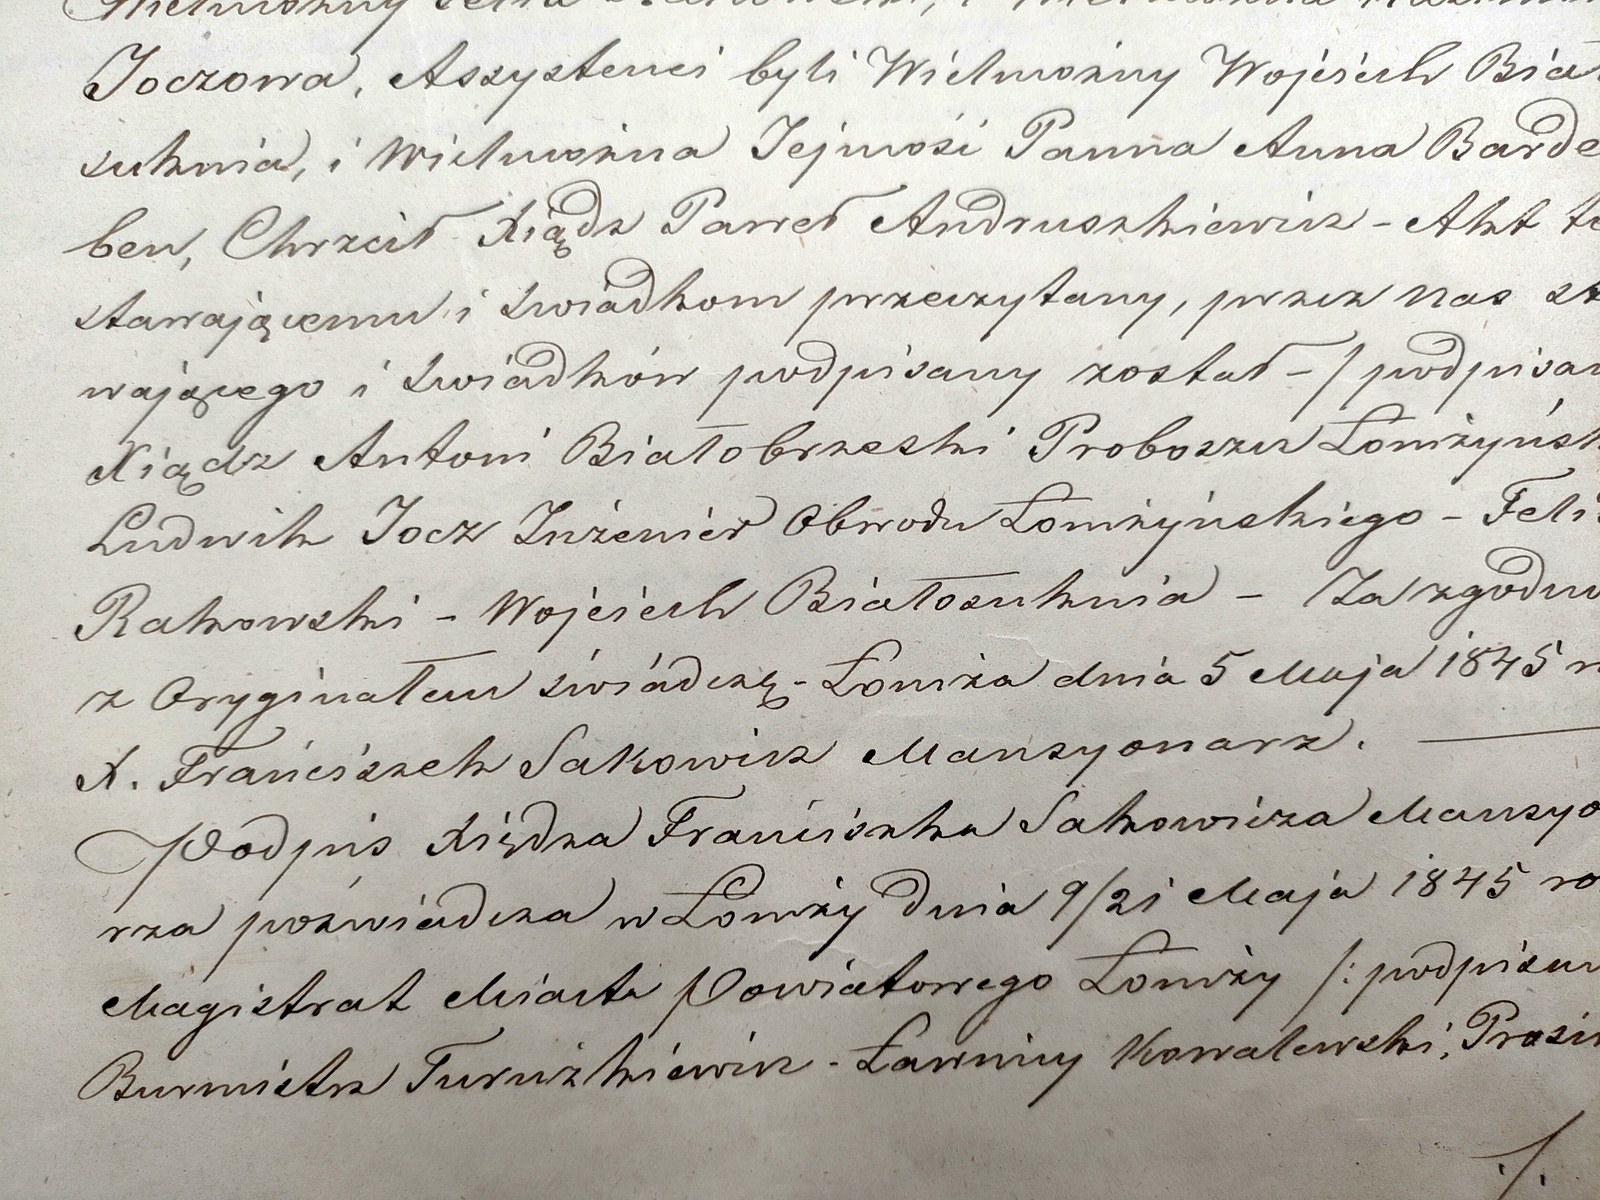 Wielmożny
Joczowa, Assystenci byli Wielmożny Wojciech Biał
suknia, i Wielmożna Jejmość Panna Anna Barde
ben, Chrzcił Xiądz Paweł Andruszkiewicz – Akt te
stawającemu i Świadkom przeczytany, przez nas st
wającego i Świadków podpisany został – / podpisan
Xiądz Antoni Białobrzeski Proboszcz Łomżyńsk
Ludwik Jocz Inżenier Obwodu Łomżyńskiego – Feli
Rakowski – Wojciech Białosuknia – Za zgodno
z Oryginałem świadczę – Łomża dnia 5 Maja 1845 r
X. Franciszek Sakowicz Mansyonarz. —
Podpis Xiędza Franciszka Sakowicza Mansyo
rza poświadcza w Łomży dnia 9/21 Maja 1845 ro
Magistrat Miasta Powiatowego Łomży /: podpisan
Burmistrz Turuszkiewicz – Ławnicy Kowalewski,
./.